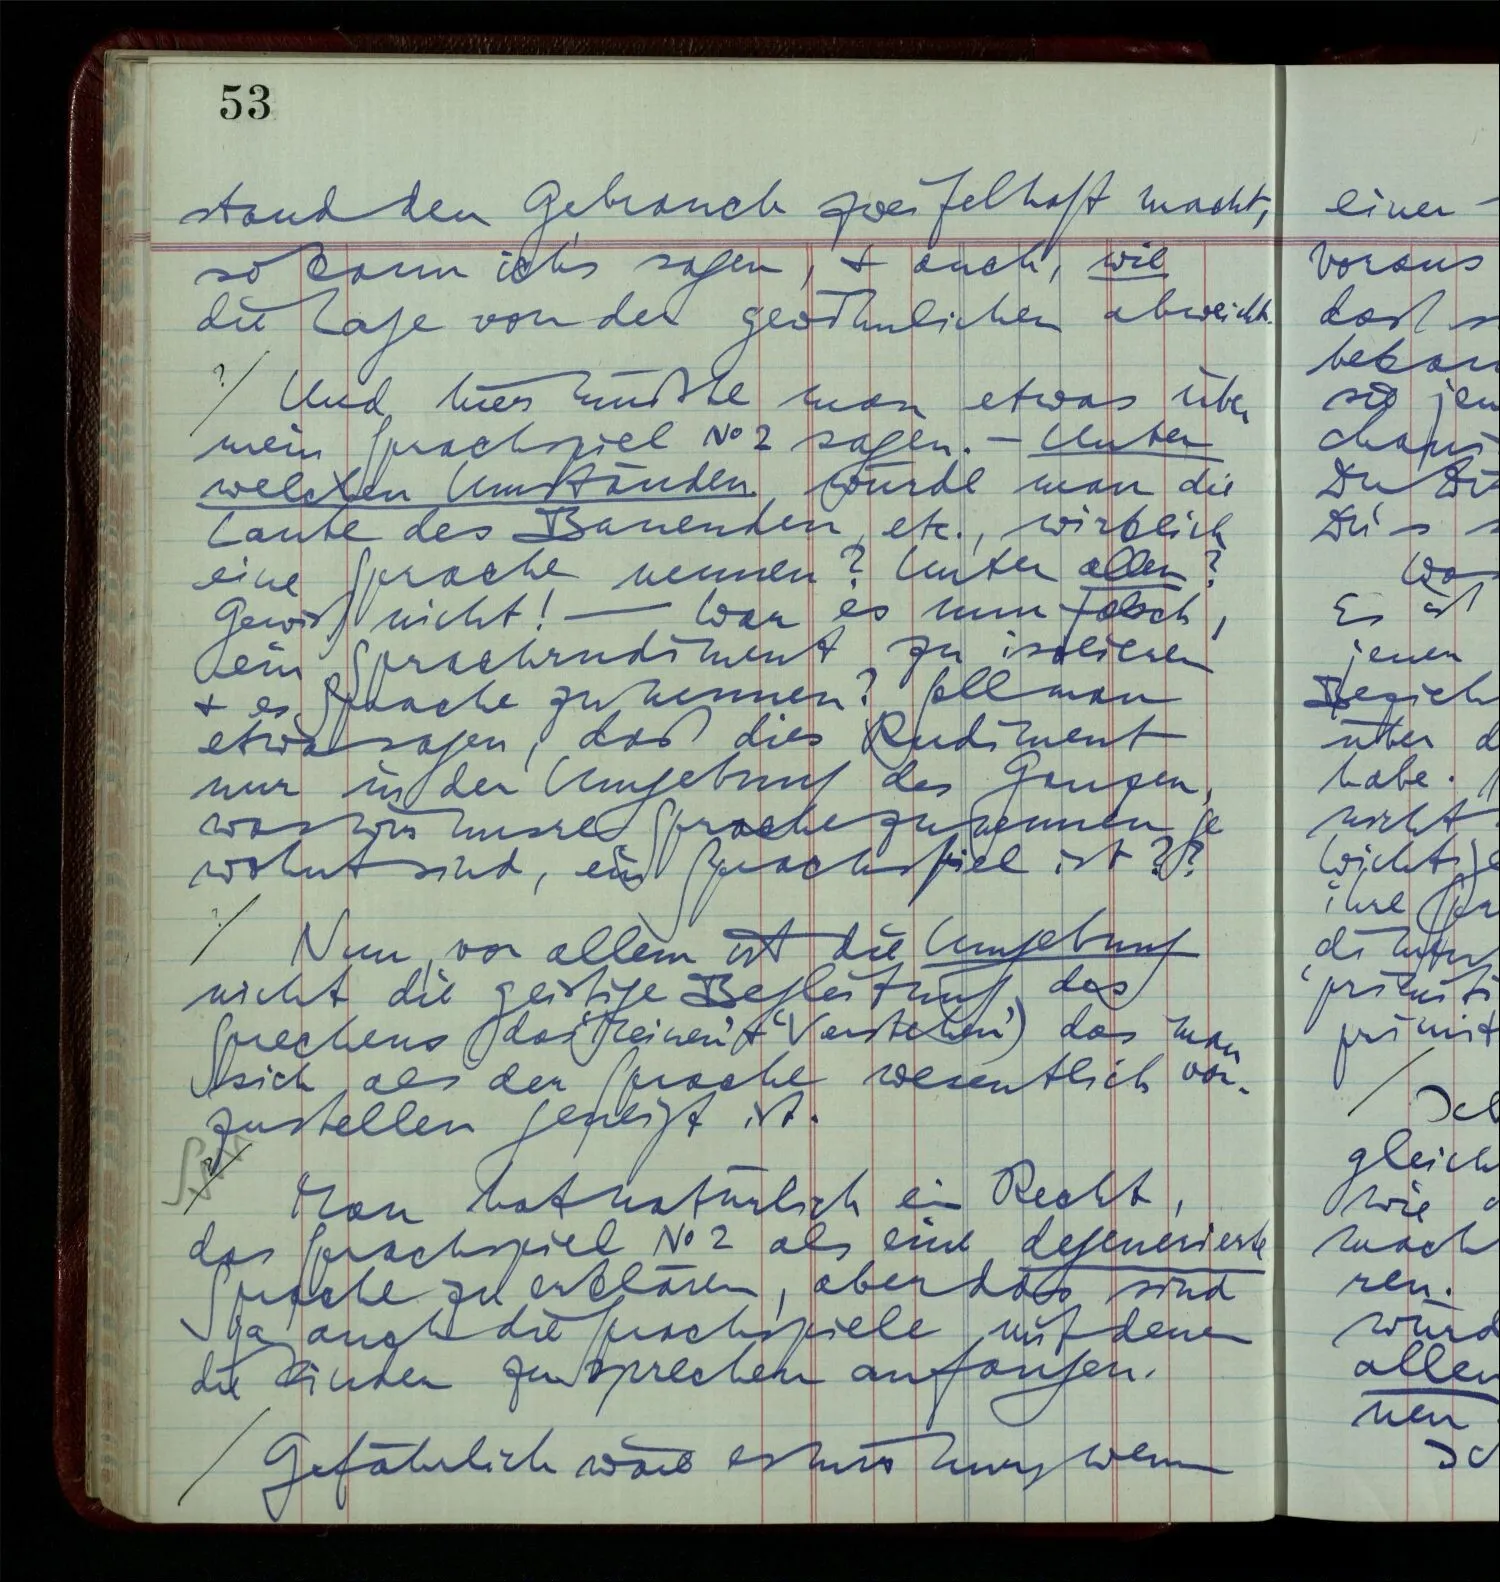 53
stand den Gebrauch zweifelhaft macht,
so kann ich's sagen, & auch, wie
die Lage von der gewöhnlichen abweicht.
?/ Und hier müßte man etwas über
mein Sprachspiel No 2 sagen. – Unter
welchen Umständen würde man die
Laute des Bauenden, etc., wirklich
eine Sprache nennen? Unter allen?
Gewiß nicht! – War es nun falsch,
ein Sprachrudiment zu isolieren
& es Sprache zu nennen? Soll man
etwa sagen, daß dies Rudiment
nur in der Umgebung des Ganzen,
was wir unsre Sprache zu nennen ge
wohnt sind, ein Sprachspiel ist??
?/ Nun, vor allem ist die Umgebung
nicht die geistige Begleitung des
Sprechens (das 'Meinen' & 'Verstehen') das man
sich als der Sprache wesentlich vor-
zustellen geneigt ist.
Man hat natürlich ein Recht,
das Sprachspiel No 2 als eine degenerierte
Sprache zu erklären, aber das sind
ja auch die Sprachspiele mit denen
die Kinder zu sprechen anfangen.
/ Gefährlich wäre es nur wenn
einer
voraus
daß
sie
Es ist
jenen
über
habe.
nicht
ihre
gleich
wie
ren.
allen
nen